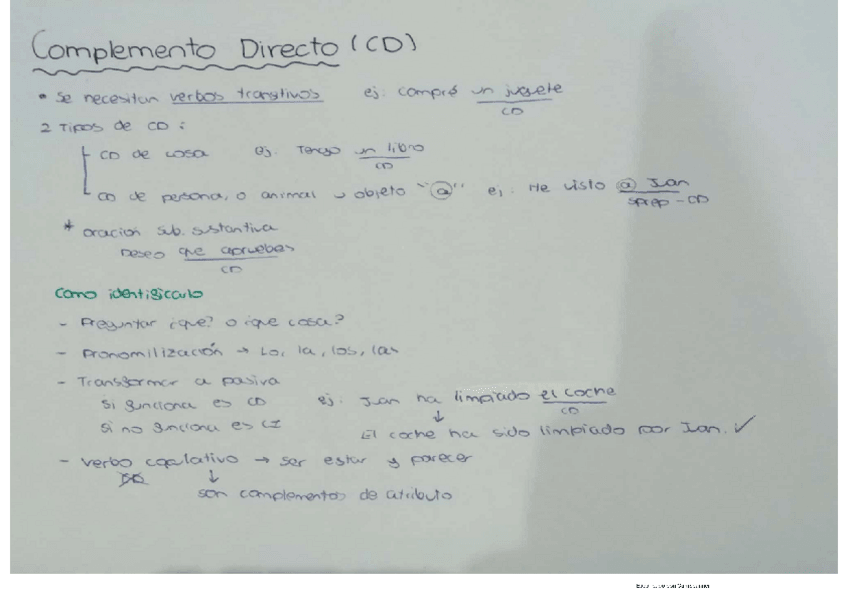 Complemento Directo (CD)
• Se necesitan verbos transitivos ej: compré un juguete
CD
2 Tipos de CD:
CD de cosa ej: Tengo un libro
CD
CD de persona, o animal u objeto "a" ej: He visto a Juan
sprep - CD
* oración sub. sustantiva
Deseo que apruebes
CD
Como identificarlo
- Preguntar ¿que? o ¿que cosa?
- Pronomilización → Lo, la, los, las
- Transformar a pasiva
si funciona es CD ej: Juan ha limpiado el coche
CD
si no funciona es CI El coche ha sido limpiado por Juan. ✓
- Verbo copulativo → ser estar y parecer
son complementos de atributo